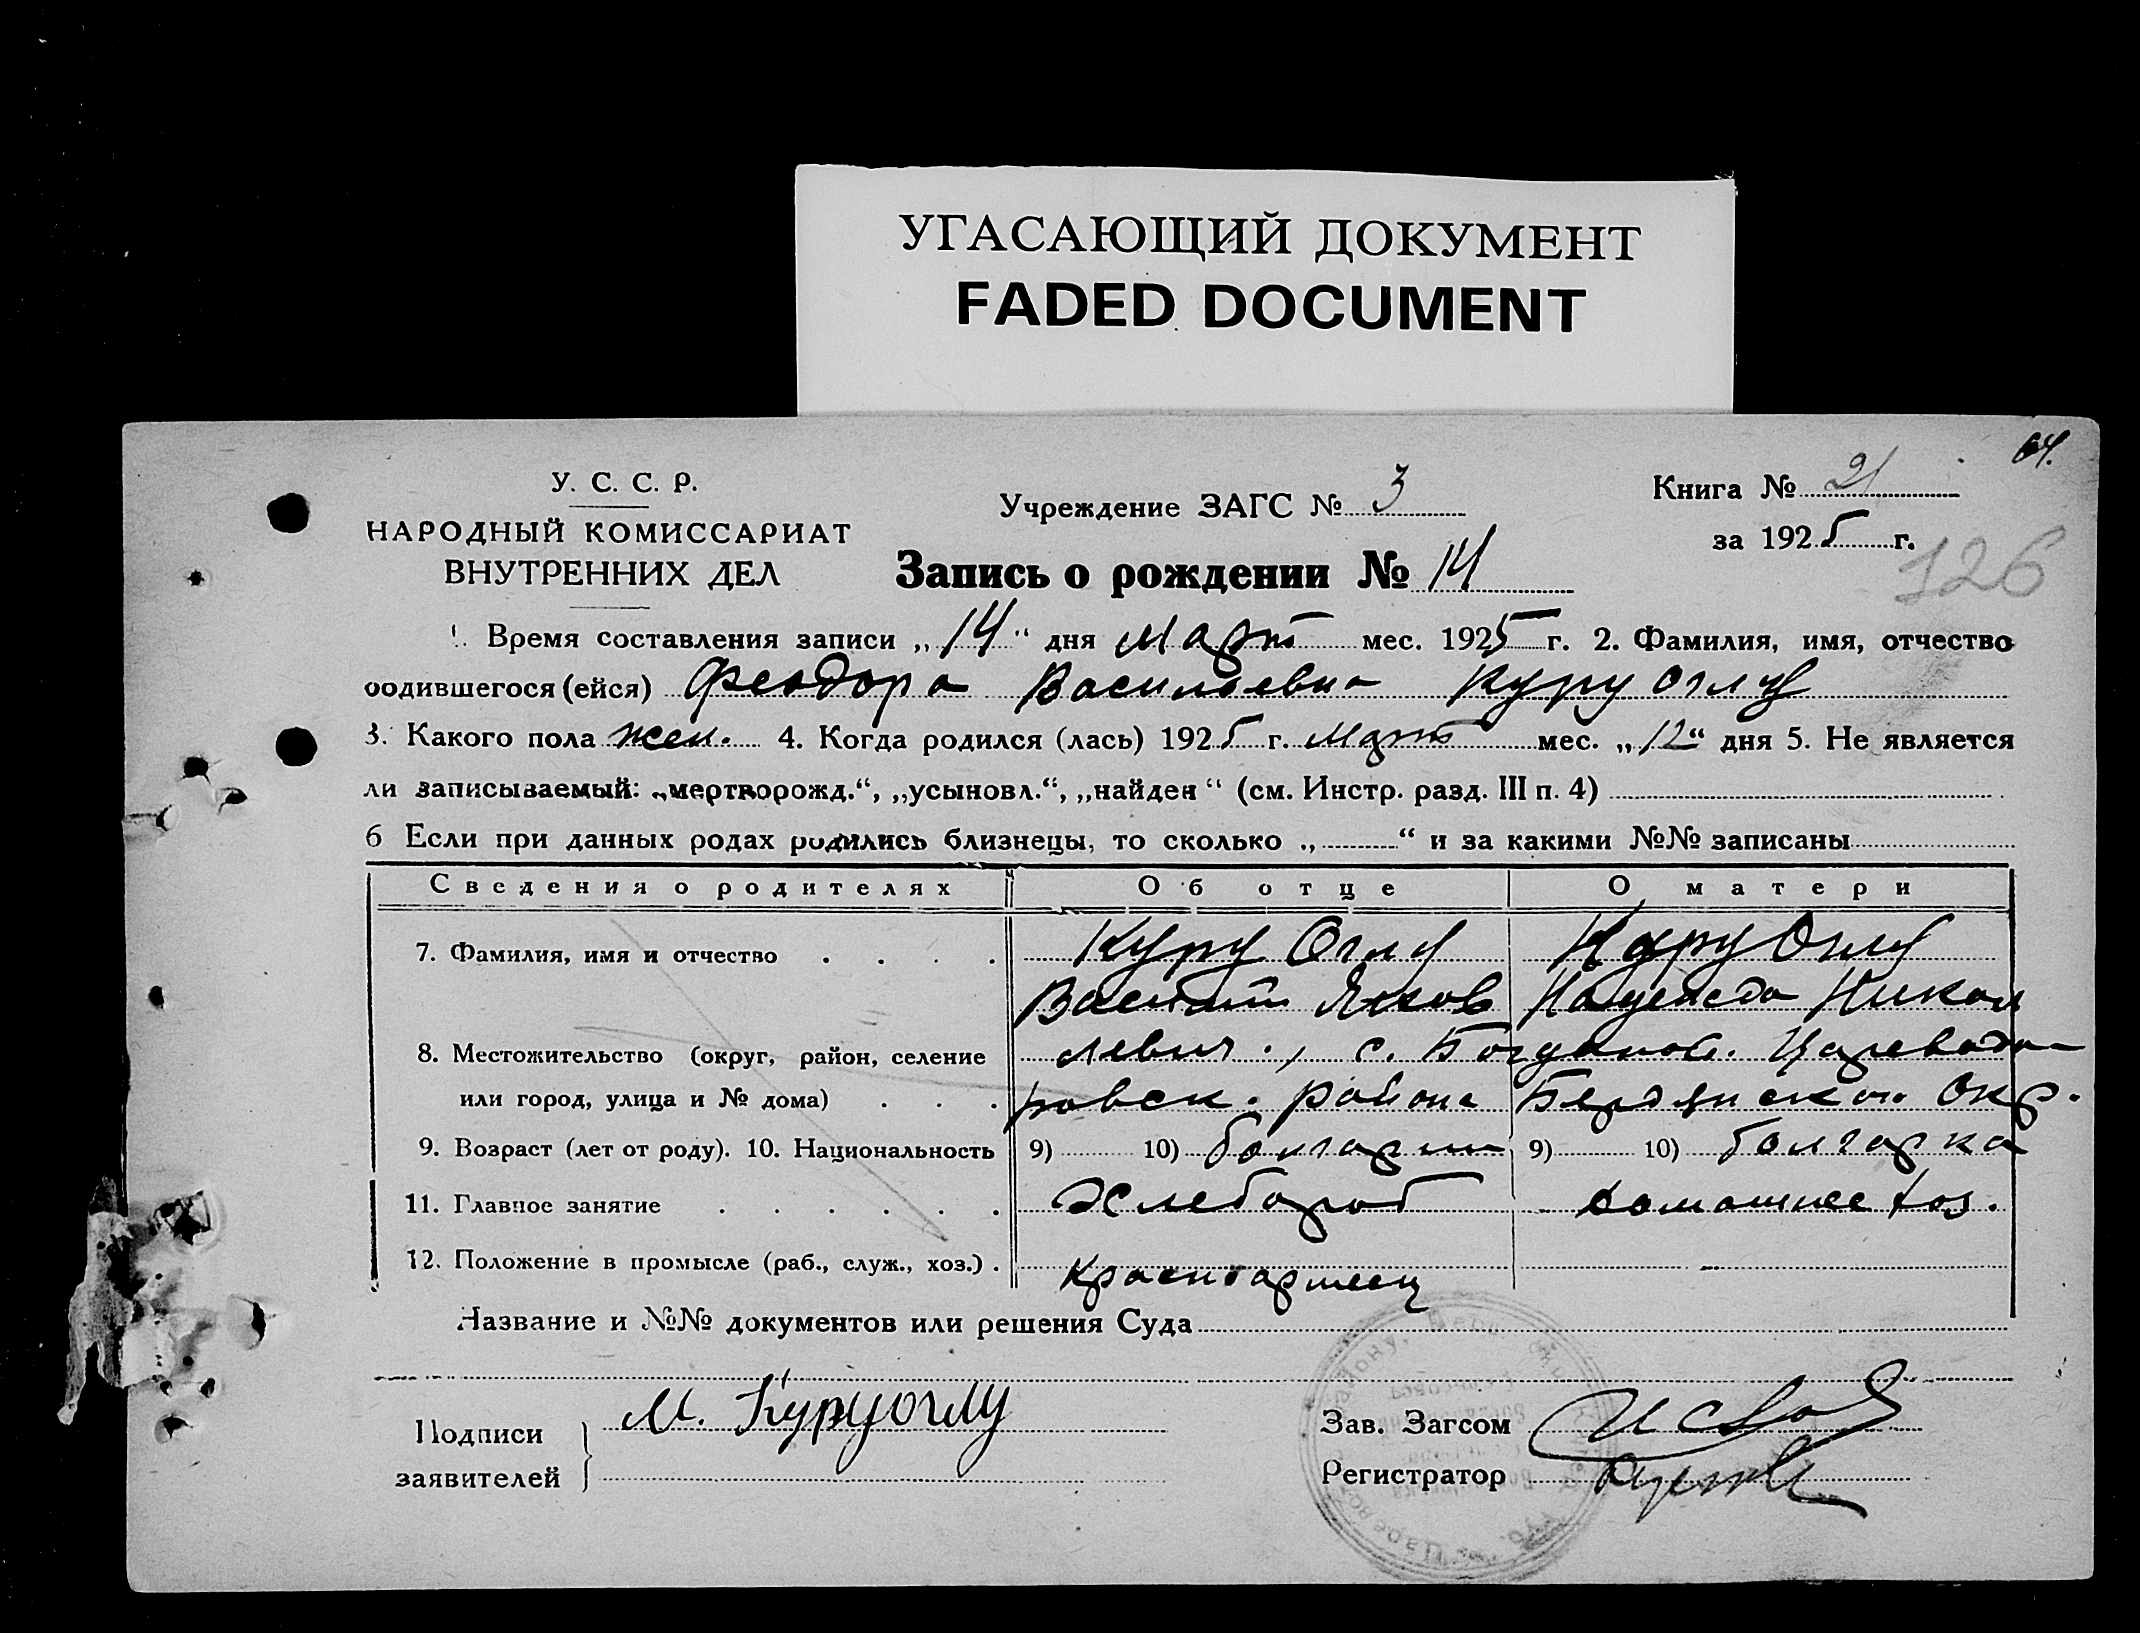 УГАСАЮЩИЙ ДОКУМЕНТ
FADED DOCUMENT
64.
У. С. С. Р.
НАРОДНЫЙ КОМИССАРИАТ
ВНУТРЕННИХ ДЕЛ
Учреждение ЗАГС № 3
Книга № 21
за 1925 г.
126
Запись о рождении № 14
1. Время составления записи „14“ дня Март мес. 1925 г. 2. Фамилия, имя, отчество
родившегося (ейся) Феодора Васильевна Куру Оглу
3. Какого пола жен. 4. Когда родился (лась) 1925 г. Март мес. „12“ дня 5. Не является
ли записываемый: „мертворожд.“, „усыновл.“, „найден“ (см. Инстр. разд. III п. 4)
6 Если при данных родах родились близнецы, то сколько „ “ и за какими №№ записаны
Сведения о родителях Об отце О матери
7. Фамилия, имя и отчество Куру Оглу Куру Оглу
Василий Яков Надежда Никол
8. Местожительство (округ, район, селение левич., с. Богдановк. Царевода
или город, улица и № дома) ровск. района Бердянской Окр.
9. Возраст (лет от роду). 10. Национальность 9) 10) болгарин 9) 10) болгарка
11. Главное занятие Хлебороб домашнее хоз.
12. Положение в промысле (раб., служ., хоз.) Красноармеец
Название и №№ документов или решения Суда
Подписи
заявителей
М. Куруоглу
Зав. Загсом
Регистратор